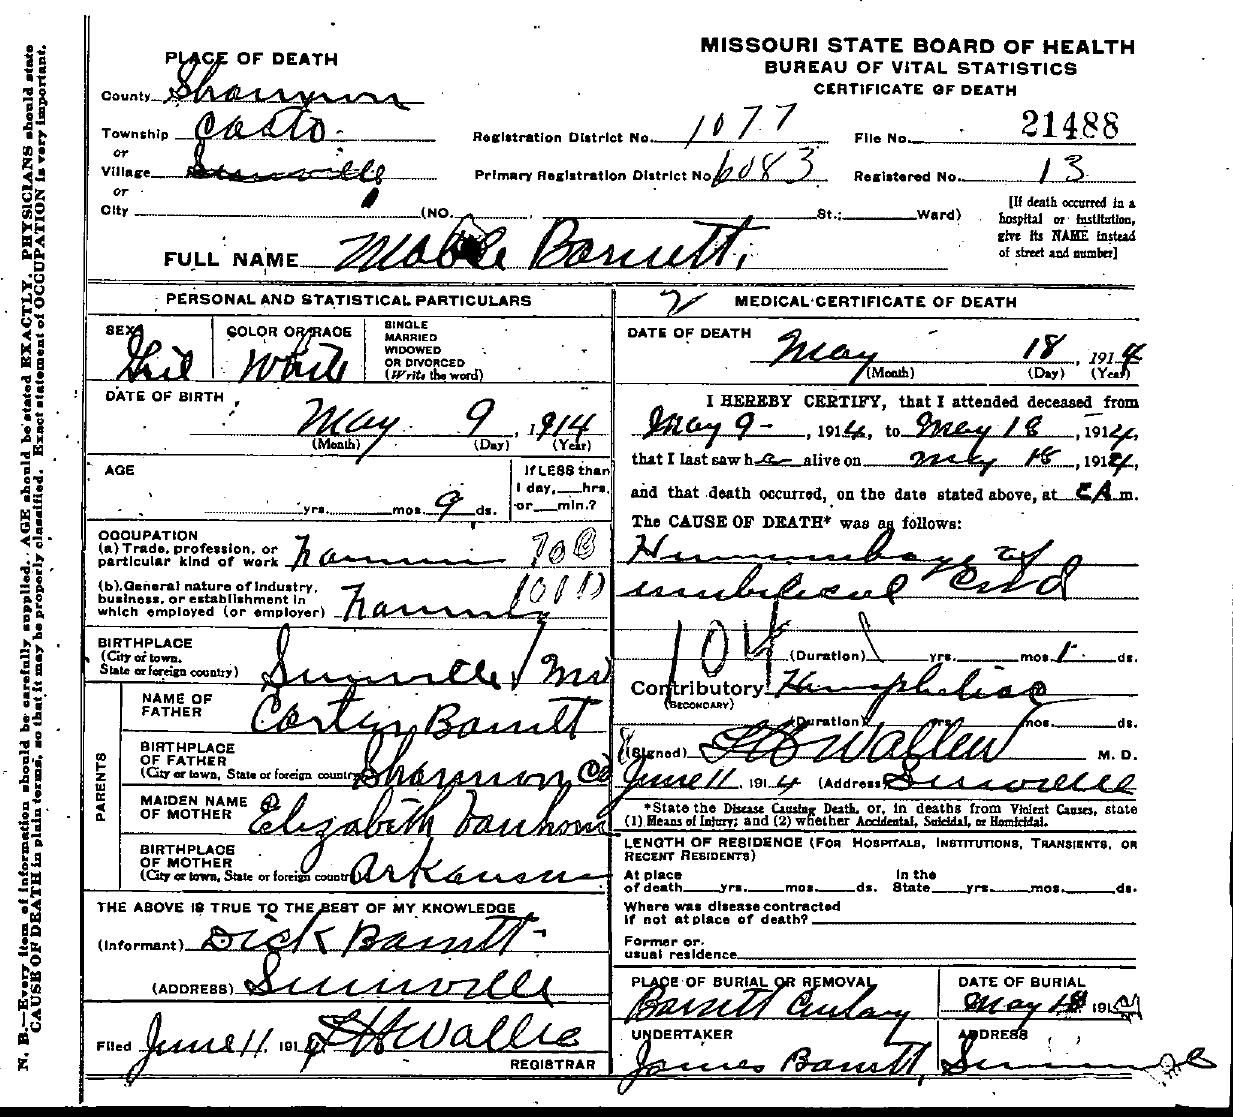 MISSOURI STATE BOARD OF HEALTH
BUREAU OF VITAL STATISTICS
CERTIFICATE OF DEATH
PLACE OF DEATH
County Shannon
Township Casto
or
Village
or
City (NO. , St.; Ward)
Registration District No. 1077
Primary Registration District No. 6083
File No. 21488
Registered No. 13
[If death occurred in a
hospital or institution,
give its NAME instead
of street and number]
FULL NAME Mable Barrett.
PERSONAL AND STATISTICAL PARTICULARS
SEX Girl
COLOR OR RACE White
SINGLE
MARRIED
WIDOWED
OR DIVORCED
(Write the word)
DATE OF BIRTH
May 9, 1914
(Month) (Day) (Year)
AGE
yrs. mos. 9 ds.
If LESS than
1 day, hrs.
or min.?
OCCUPATION
(a) Trade, profession, or
particular kind of work
(b) General nature of industry,
business, or establishment in
which employed (or employer)
BIRTHPLACE
(City or town,
State or foreign country)
PARENTS
NAME OF
FATHER Barrett
BIRTHPLACE
OF FATHER
(City or town, State or foreign country) Shannon Co
MAIDEN NAME
OF MOTHER Elizabeth
BIRTHPLACE
OF MOTHER
(City or town, State or foreign country) Arkansas
THE ABOVE IS TRUE TO THE BEST OF MY KNOWLEDGE
(Informant) Dick Barrett
(ADDRESS)
Filed June 11 191
REGISTRAR
2 MEDICAL CERTIFICATE OF DEATH
DATE OF DEATH
May 18, 1914
(Month) (Day) (Year)
I HEREBY CERTIFY, that I attended deceased from
May 9-, 1914, to May 18, 1914,
that I last saw h alive on May 18, 1914,
and that death occurred, on the date stated above, at m.
The CAUSE OF DEATH* was as follows:
Hemmorhage of
umbilical Cord
104
(Duration) yrs. mos. 1 ds.
Contributory
(SECONDARY)
(Duration) yrs. mos. ds.
(Signed) M. D.
June 11, 1914 (Address)
*State the Disease Causing Death, or, in deaths from Violent Causes, state
(1) Means of Injury; and (2) whether Accidental, Suicidal, or Homicidal.
LENGTH OF RESIDENCE (FOR HOSPITALS, INSTITUTIONS, TRANSIENTS, OR
RECENT RESIDENTS)
At place
of death yrs. mos. ds.
In the
State yrs. mos. ds.
Where was disease contracted
if not at place of death?
Former or
usual residence
PLACE OF BURIAL OR REMOVAL
Barrett
DATE OF BURIAL
May 18 1914
UNDERTAKER
James Barrett,
ADDRESS
N. B.—Every item of information should be carefully supplied. AGE should be stated EXACTLY. PHYSICIANS should state
CAUSE OF DEATH in plain terms, so that it may be properly classified. Exact statement of OCCUPATION is very important.